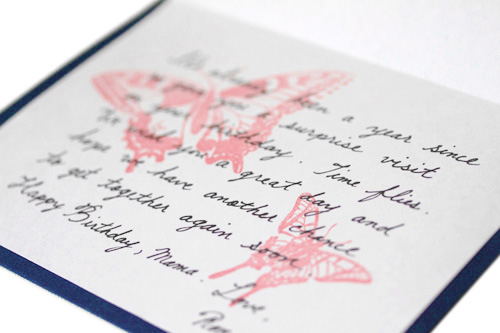 been a year since
gave you a surprise visit
on your birthday. Time flies.
wish you a great day and
hope we have another chance
to get together again soon.
Happy Birthday, Mama. Love,